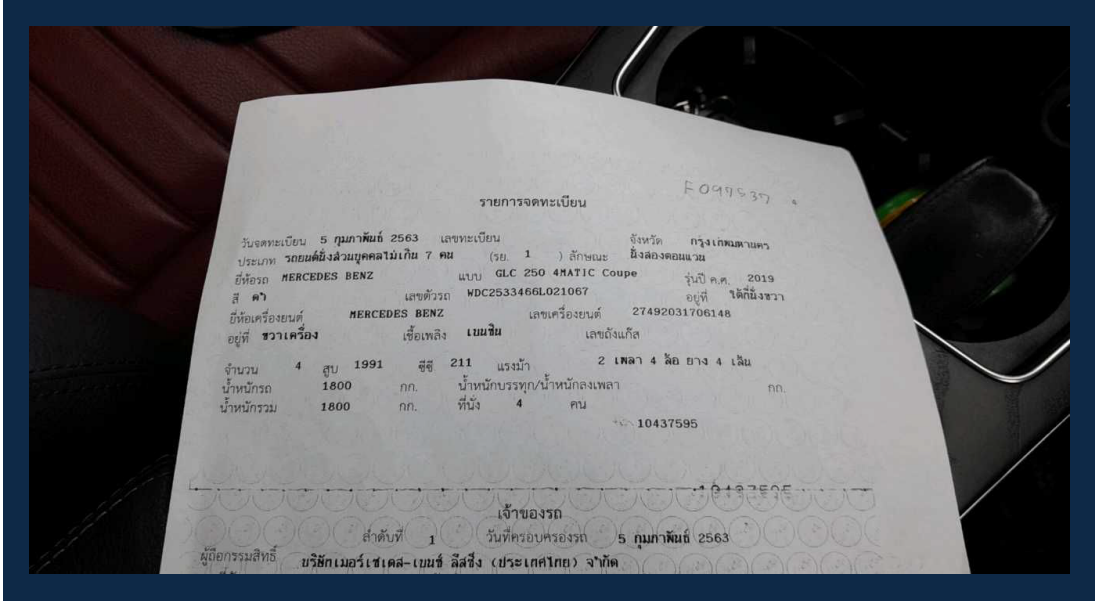 F099537
รายการจดทะเบียน
วันจดทะเบียน 5 กุมภาพันธ์ 2563 เลขทะเบียน จังหวัด กรุงเทพมหานคร
ประเภท รถยนต์นั่งส่วนบุคคลไม่เกิน 7 คน (รย. 1 ) ลักษณะ นั่งสองตอนแวน
ยี่ห้อรถ MERCEDES BENZ แบบ GLC 250 4MATIC Coupe รุ่นปี ค.ศ. 2019
สี ดำ เลขตัวรถ WDC2533466L021067 อยู่ที่ ใต้ที่นั่งขวา
ยี่ห้อเครื่องยนต์ MERCEDES BENZ เลขเครื่องยนต์ 27492031706148
อยู่ที่ ขวาเครื่อง เชื้อเพลิง เบนซิน เลขถังแก๊ส
จำนวน 4 สูบ 1991 ซีซี 211 แรงม้า 2 เพลา 4 ล้อ ยาง 4 เส้น
น้ำหนักรถ 1800 กก. น้ำหนักบรรทุก/น้ำหนักลงเพลา กก.
น้ำหนักรวม 1800 กก. ที่นั่ง 4 คน
10437595
10437595
เจ้าของรถ
ลำดับที่ 1 วันที่ครอบครองรถ 5 กุมภาพันธ์ 2563
ผู้ถือกรรมสิทธิ์ บริษัทเมอร์เซเดส-เบนซ์ ลีสซิ่ง (ประเทศไทย) จำกัด